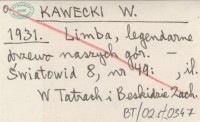 KAWECKI W.
1931. Limba, legendarne
drzewo naszych gór. –
Światowid 8, nr 49: , il.
W Tatrach i Beskidzie Zach.
BT/02 rt/0347